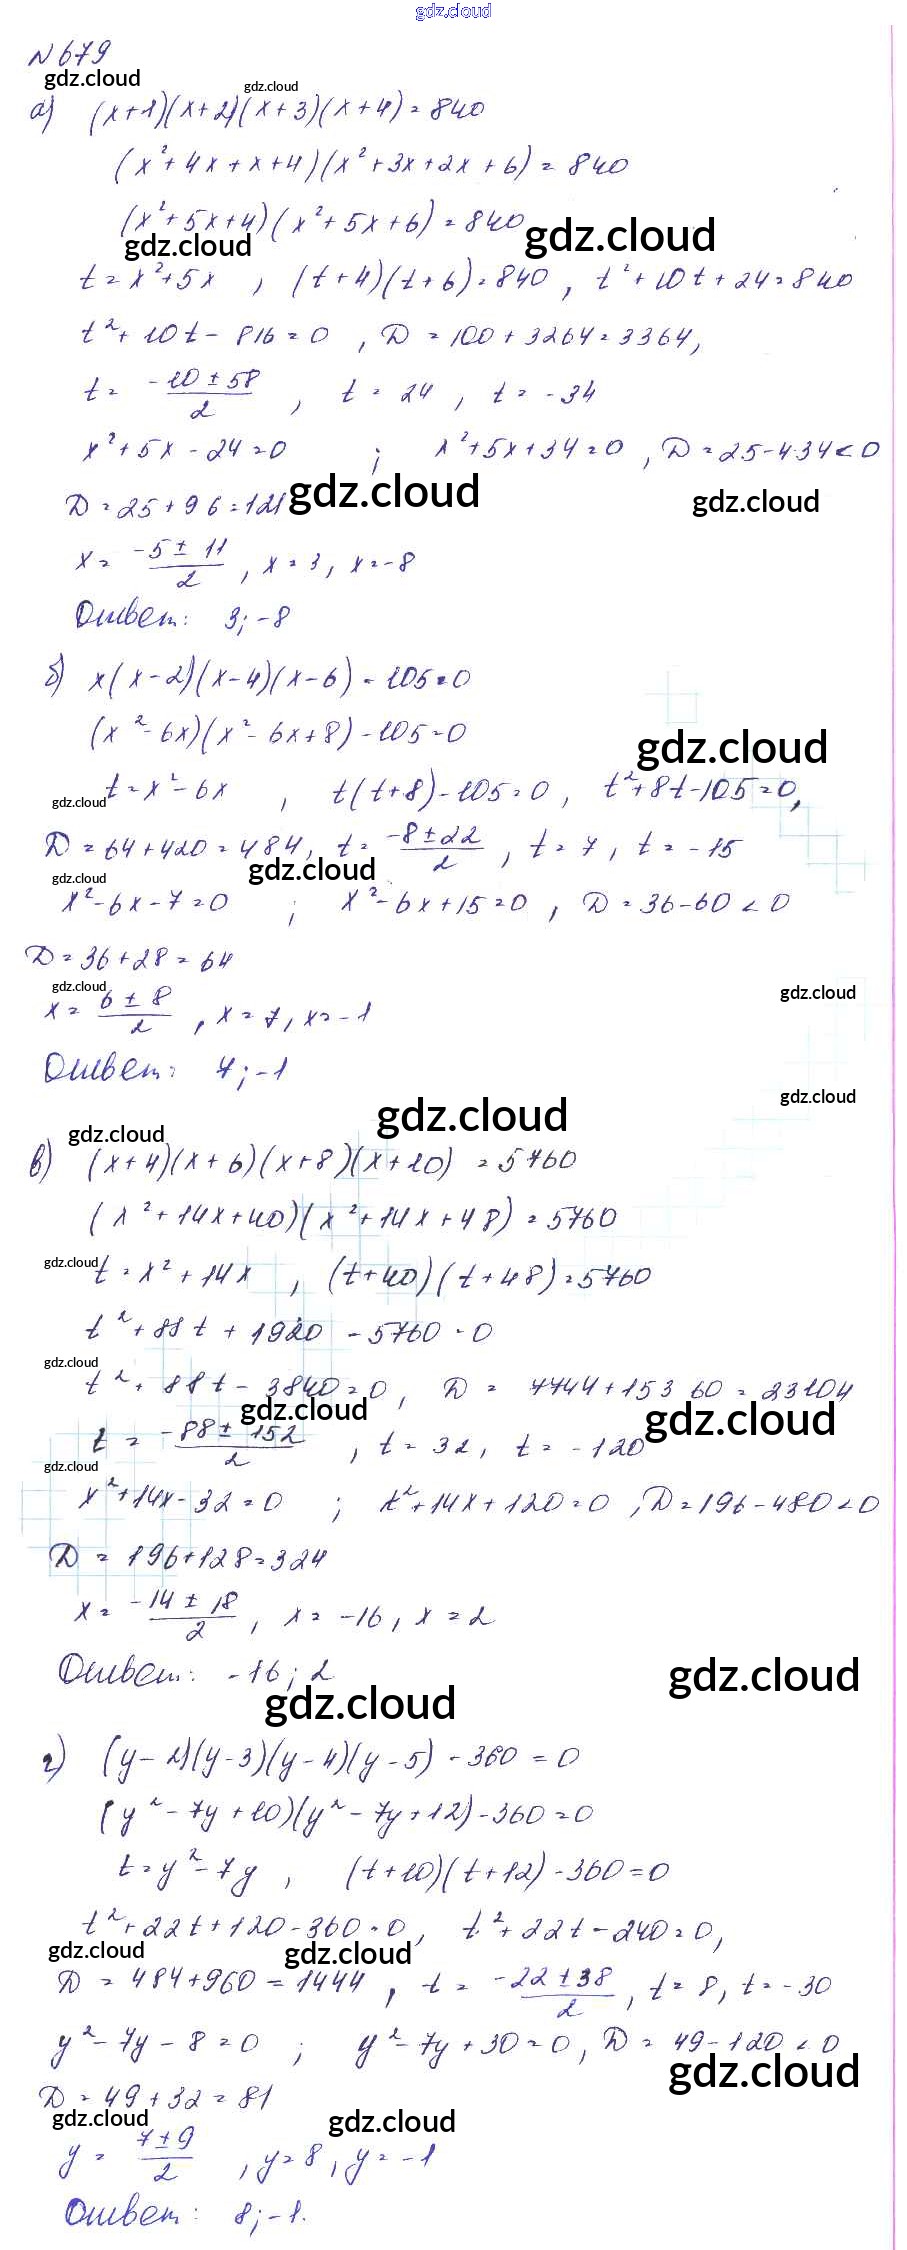 gdz.cloud
N 679
gdz.cloud gdz.cloud
а) (x+1)(x+2)(x+3)(x+4) = 840
(x²+4x+x+4)(x²+3x+2x+6) = 840
(x²+5x+4)(x²+5x+6) = 840
gdz.cloud gdz.cloud
t = x²+5x , (t+4)(t+6) = 840 , t²+10t+24 = 840
t²+10t - 816 = 0 , D = 100 + 3264 = 3364,
t = (-10 ± 58)/2 , t = 24 , t = -34
x²+5x - 24 = 0 ; x²+5x+34 = 0 , D = 25-4·34 < 0
D = 25 + 96 = 121 gdz.cloud gdz.cloud
x = (-5 ± 11)/2 , x = 3, x = -8
Ответ: 3; -8
б) x(x-2)(x-4)(x-6) - 105 = 0
(x²-6x)(x²-6x+8) - 105 = 0
gdz.cloud
t = x²-6x , t(t+8) - 105 = 0 , t²+8t-105 = 0,
gdz.cloud
D = 64+420 = 484, t = (-8 ± 22)/2 , t = 7 , t = -15
gdz.cloud gdz.cloud
x²-6x-7 = 0 ; x²-6x+15 = 0 , D = 36-60 < 0
D = 36+28 = 64
gdz.cloud gdz.cloud
x = (6 ± 8)/2 , x = 7, x = -1
Ответ: 7; -1
gdz.cloud
gdz.cloud gdz.cloud
в) (x+4)(x+6)(x+8)(x+10) = 5760
(x²+14x+40)(x²+14x+48) = 5760
gdz.cloud
t = x²+14x , (t+40)(t+48) = 5760
t²+88t + 1920 - 5760 = 0
gdz.cloud
t²+ 88t - 3840 = 0 , D = 7744+15360 = 23104
gdz.cloud gdz.cloud
t = (-88 ± 152)/2 , t = 32, t = -120
gdz.cloud
x²+14x-32 = 0 ; t²+14x+120 = 0 , D = 196-480 < 0
D = 196+128 = 324
x = (-14 ± 18)/2 , x = -16, x = 2
Ответ: -16; 2
gdz.cloud gdz.cloud
г) (y-2)(y-3)(y-4)(y-5) - 360 = 0
(y²-7y+10)(y²-7y+12) - 360 = 0
t = y²-7y , (t+10)(t+12) - 360 = 0
t²+22t+120-360 = 0, t²+22t-240 = 0,
gdz.cloud gdz.cloud
D = 484+960 = 1444 , t = (-22 ± 38)/2 , t = 8, t = -30
y²-7y-8 = 0 ; y²-7y+30 = 0, D = 49-120 < 0
gdz.cloud
D = 49+32 = 81
gdz.cloud gdz.cloud
y = (7 ± 9)/2 , y = 8, y = -1
Ответ: 8; -1.